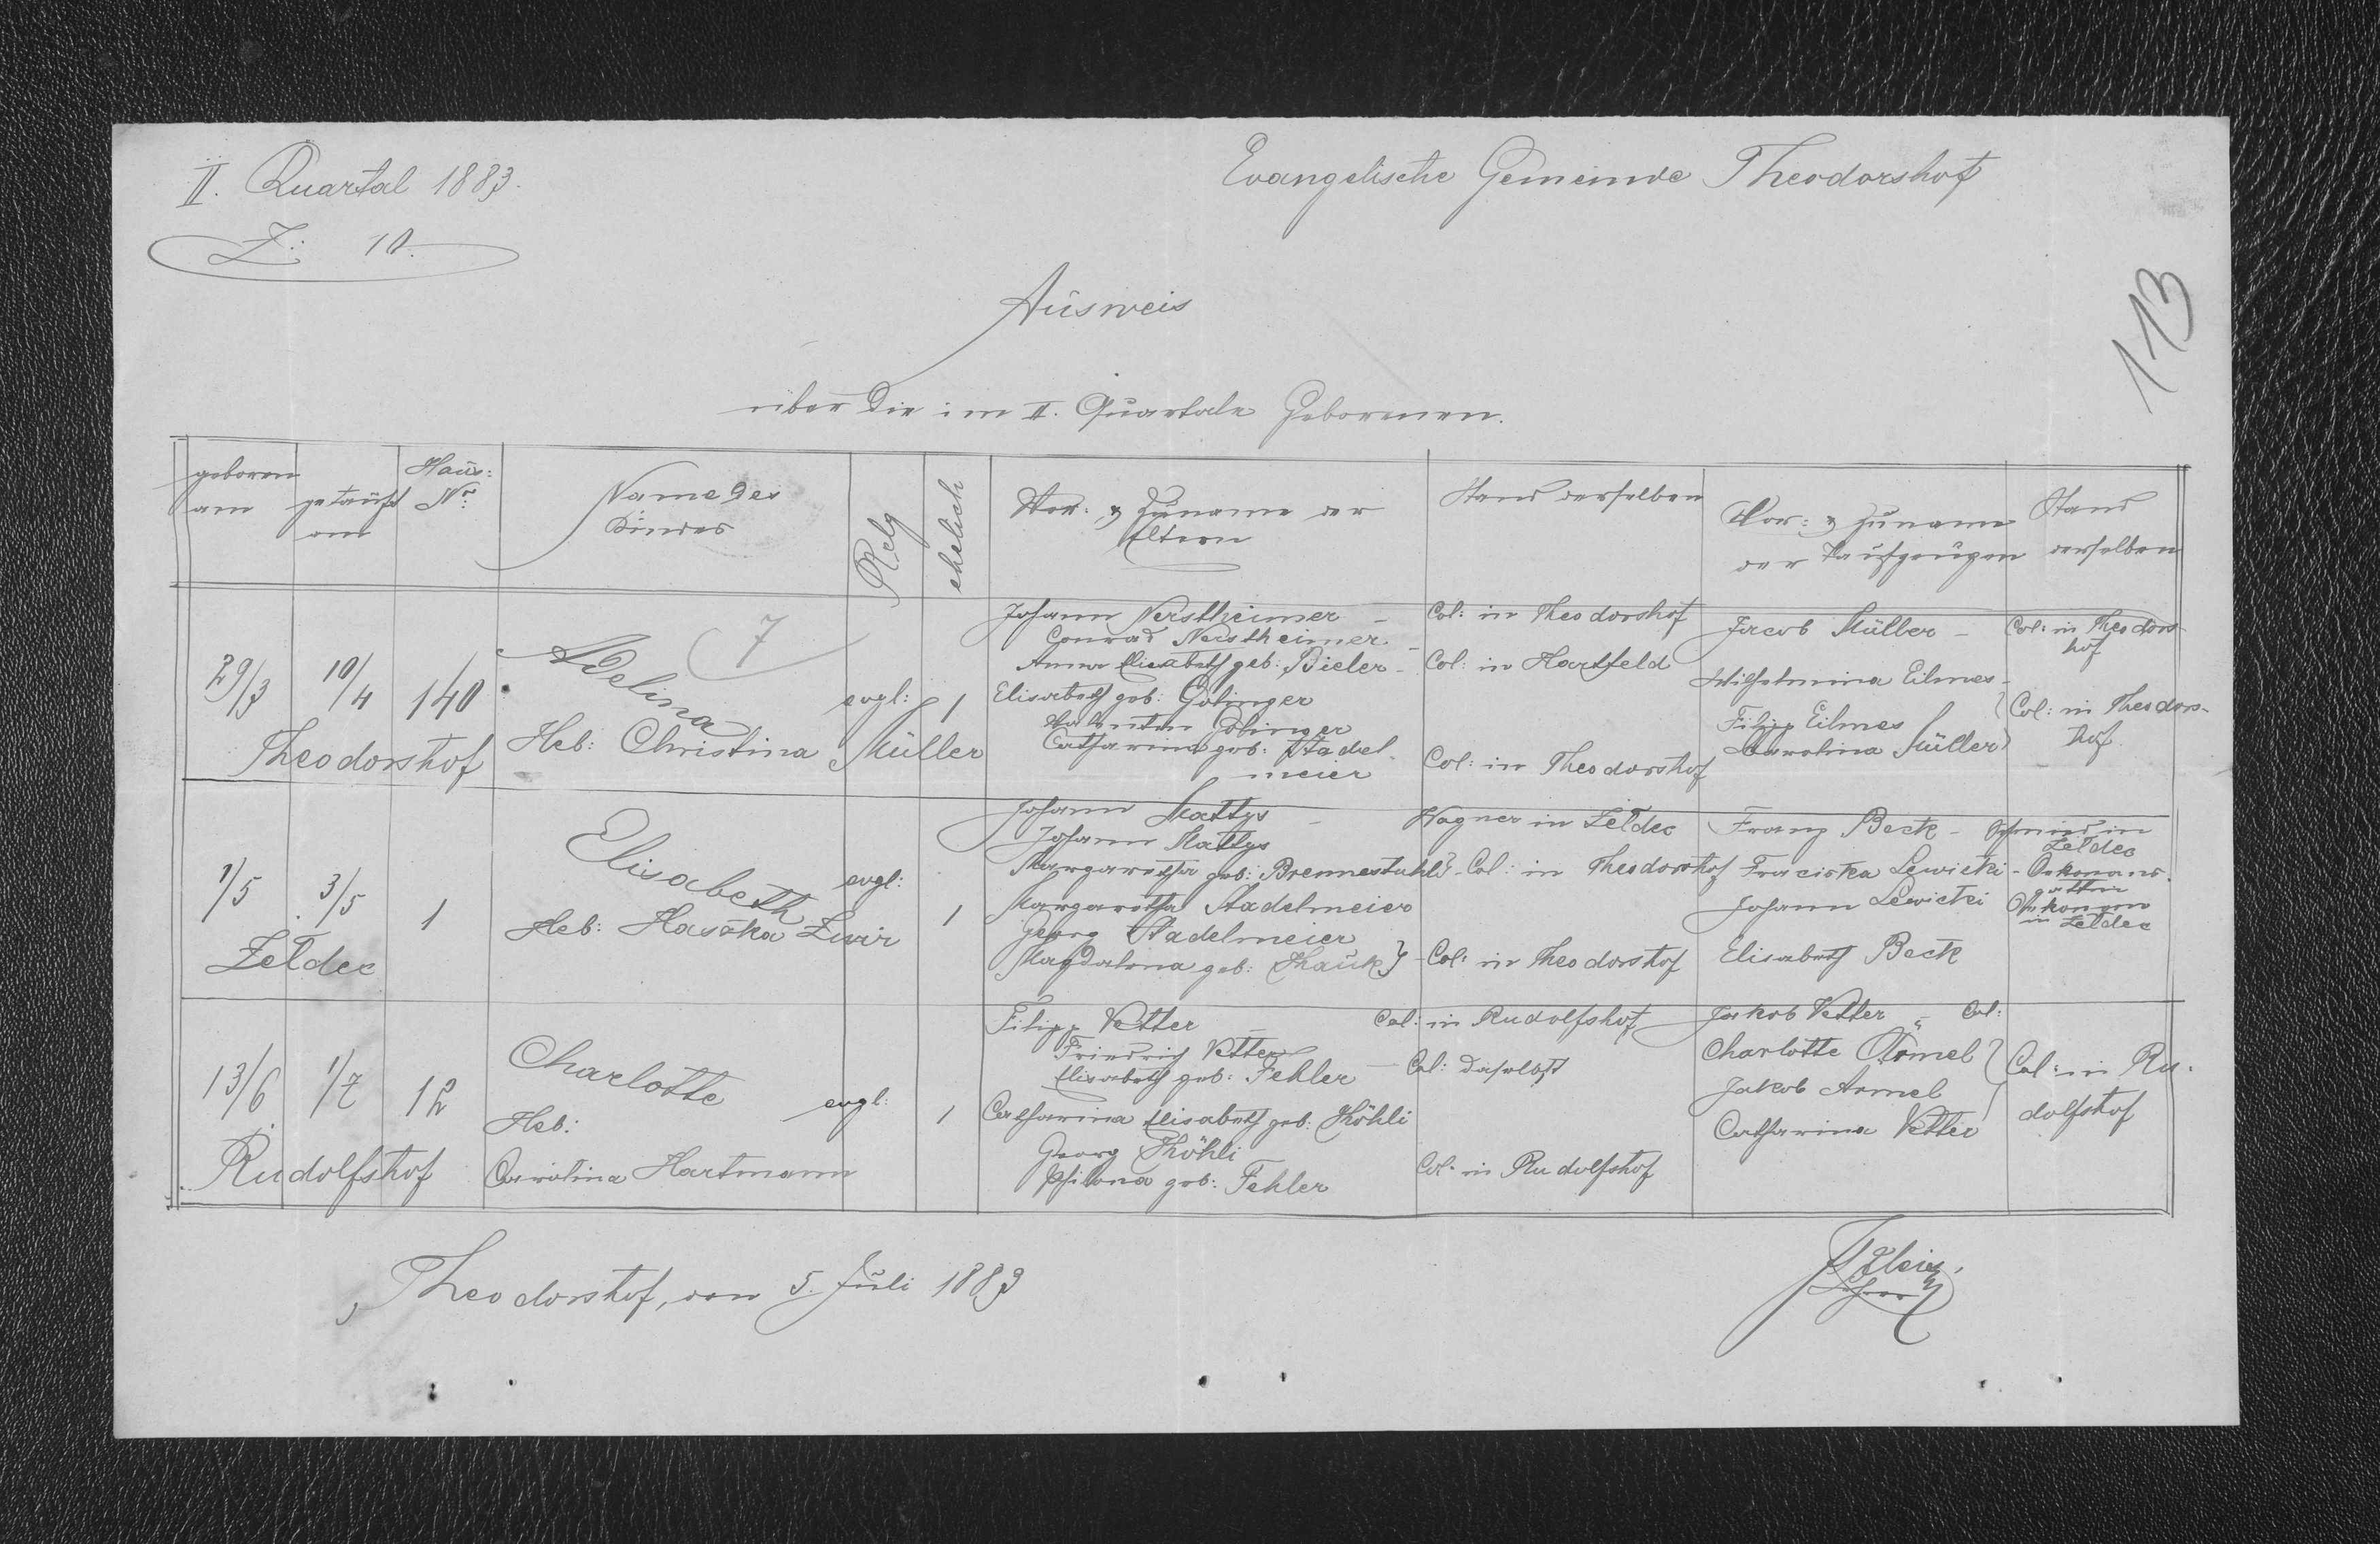 II. Quartal 1883.
Evangelische Gemeinde Theodorshof
Z: 10.
113
Ausweis
über die im II. Quartale Geborenen.
geboren am
getauft am
Haus: Nr.
Name des Kindes
Relg
ehelich
Vor: & Zuname der Eltern
Stand derselben
Vor: & Zuname der Taufzeugen
Stand derselben
29/3
10/4
140
Theodorshof
7
Adelina
Heb: Christina Müller
evgl:
1
Johann Nerstheimer –
Conrad Nerstheimer
Anna Elisabeth geb: Bieler –
Elisabeth geb: Golinger
Valentin Golinger
Catharina geb: Stadel-
meier
Col: in Theodorshof
Col: in Hartfeld
Col: in Theodorshof
Jacob Müller –
Wilhelmina Eilmes –
Filipp Eilmes
Carolina Müller
Col: in Theodors-
hof
Col: in Theodors-
hof.
1/5
3/5
1
Zeldec
Elisabeth
Heb: Haska Zwir
evgl:
1
Johann Mattys –
Johann Mattys
Margaretha geb: Brennestuhl
Margaretha Stadelmeier
Georg Stadelmeier
Magdalena geb: Hauk
Wagner in Zeldec
Col: in Theodorshof
Col: in Theodorshof
Franz Beck –
Fraciska Lewicki –
Johann Lewicki
Elisabeth Beck
Schmied in
Zeldec
Oekonoms
gattin
Oekonom
in Zeldec
13/6
1/7
12
Rudolfshof
Charlotte
Heb:
Carolina Hartmann
evgl:
1
Filipp Vetter –
Friedrich Vetter
Elisabeth geb: Fehler –
Catharina Elisabeth geb: Köhli
Georg Köhli
Philona geb: Fehler
Col: in Rudolfshof
Col: daselbst
Col: in Rudolfshof
Jakob Vetter „ Col:
Charlotte Armel
Jakob Armel
Catharina Vetter
Col: in Ru-
dolfshof
Theodorshof, den 5. Juli 1883